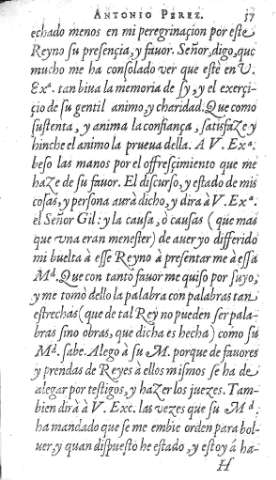 ANTONIO PEREZ. 57
echado menos en mi peregrinaçion por este
Reyno su presençia, y fauor. Señor, digo, que
mucho me ha consolado ver que esté en V.
Exª. tan biua la memoria de sy, y el exerçi-
çio de su gentil animo, y charidad. Que como
sustenta, y anima la confiança, satisfaze y
hinche el animo la prueua della. A V. Exª.
beso las manos por el offresçimiento que me
haze de su fauor. El discurso, y estado de mis
cosas, y persona aurà dicho, y dirà à V. Exª.
el Señor Gil: y la causa, ò causas (que mas
que vna eran menester) de auer yo differido
mi buelta à esse Reyno à presentarme à essa
Mᵈ. Que con tanto fauor me quiso por suyo,
y me tomò dello la palabra con palabras tan
estrechas (que de tal Rey no pueden ser pala-
bras sino obras, que dicha es hecha) como su
Mᵈ. sabe. Alego à su M. porque de fauores
y prendas de Reyes à ellos mismos se ha de
alegar por testigos, y hazer los juezes. Tam-
bien dirà à V. Exc. las vezes que su Mᵈ.
ha mandado que se me embie orden para bol-
uer, y quan dispuesto he estado, y estoy á ha-
H